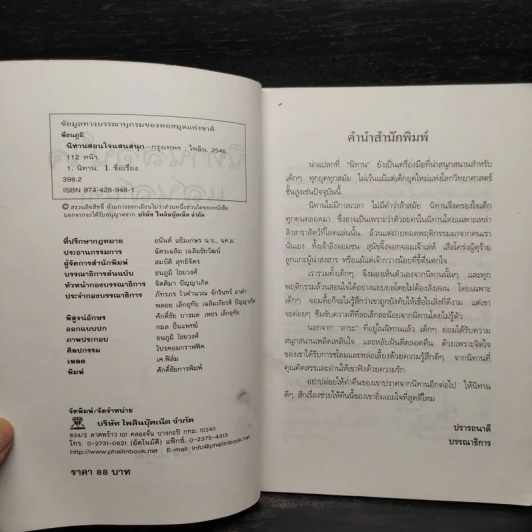 ข้อมูลทางบรรณานุกรมของหอสมุดแห่งชาติ
พี่ธนภูมิ
นิทานสอนใจแสนสนุก.--กรุงเทพฯ : ไพลิน, 2546.
112 หน้า.
1. นิทาน. I. ชื่อเรื่อง.
398.2
ISBN 974-428-948-1
© สงวนลิขสิทธิ์ ห้ามการลอกเลียนไม่ว่าส่วนหนึ่งส่วนใดของหนังสือ
นอกจากจะได้รับอนุญาตจาก บริษัท ไพลินบุ๊คเน็ต จำกัด
ที่ปรึกษากฎหมาย อนันต์ แย้มเกษร น.บ., นศ.ม.
ประธานกรรมการ ฉัตรเฉลิม เฉลิมชัยวัฒน์
ผู้จัดการสำนักพิมพ์ สมบัติ สุทธิจิตร
บรรณาธิการต้นฉบับ ธนภูมิ ไชยวงศ์
หัวหน้ากองบรรณาธิการ จิตติมา ปัญญาเกิด
ประจำกองบรรณาธิการ ภัทรภร จักรินทร์
พลอย เล็กอุทัย เฉลิมเกียรติ ปัญญาเกิด
พิสูจน์อักษร ศักดิ์ชัย เพชร เล็กอุทัย
ออกแบบปก กมล ปิ่นแพทย์
ภาพประกอบ ธนภูมิ ไชยวงศ์
ศิลปกรรม โปรคอมกราฟฟิค
เพลต เค.ฟิล์ม
พิมพ์ ศักดิ์ชัยการพิมพ์
จัดพิมพ์/จัดจำหน่าย
บริษัท ไพลินบุ๊คเน็ต จำกัด
834/2 ลาดพร้าว 101 คลองจั่น บางกะปิ กทม. 10240
โทร. 0-2731-0621 (อัตโนมัติ) แฟ็กซ์. 0-2375-4313
http://www.phailinbook.net E-mail : info@phailinbook.net
ราคา 88 บาท
คำนำสำนักพิมพ์
น่าแปลกที่ "นิทาน" ยังเป็นเครื่องมือที่น่าสนุกสนานสำหรับ
เด็กๆ ทุกยุคทุกสมัย ไม่เว้นแม้แต่เด็กยุคใหม่แห่งโลกวิทยาศาสตร์
ชั้นสูงเช่นปัจจุบันนี้
นิทานไม่มีกาลเวลา ไม่มีคำว่าล้าสมัย นิทานจึงครองใจเด็ก
ทุกคนตลอดมา ซึ่งอาจเป็นเพราะว่าตัวละครในนิทานโดยเฉพาะเหล่า
สิงสาราสัตว์ที่โลดแล่นนั้น ล้วนแต่ถ่ายทอดพฤติกรรมมาจากคนเรา
นั่นเอง ทั้งเจ้าลิงจอมซน สุนัขจิ้งจอกจอมเจ้าเล่ห์ เสือโคร่งผู้ดุร้าย
ลูกแกะผู้น่าสงสาร หรือแม้แต่เจ้ากวางน้อยที่ขี้ตื่นตกใจ
เรารวมทั้งเด็กๆ จึงมองเห็นตัวเองจากนิทานนั้นๆ และทุก
พฤติกรรมล้วนสอนใจได้อย่างแยบยลโดยไม่ต้องสั่งสอน โดยเฉพาะ
เด็กๆ จอมดื้อก็จะไม่รู้สึกว่าเขาถูกบังคับให้เชื่อในสิ่งที่ดีงาม แต่เขา
จะค่อยๆ ซึมซับความดีทีละเล็กละน้อยจากนิทานโดยไม่รู้ตัว
นอกจาก "สาระ" ที่อยู่ในนิทานแล้ว เด็กๆ ย่อมได้รับความ
สนุกสนานเพลิดเพลินใจ และหลับฝันดีตลอดคืน ด้วยเพราะจิตใจ
ของเขาได้รับการชโลมและหล่อเลี้ยงด้วยความรู้สึกดีๆ จากนิทานที่
คุณคัดสรรและอ่านให้เขาฟังด้วยความรัก
อย่าปล่อยให้ค่ำคืนของเขาปราศจากนิทานอีกต่อไป ให้นิทาน
ดีๆ สักเรื่องช่วยให้คืนนี้ของเขาอิ่มเอมใจที่สุดดีไหม
ปรารถนาดี
บรรณาธิการ